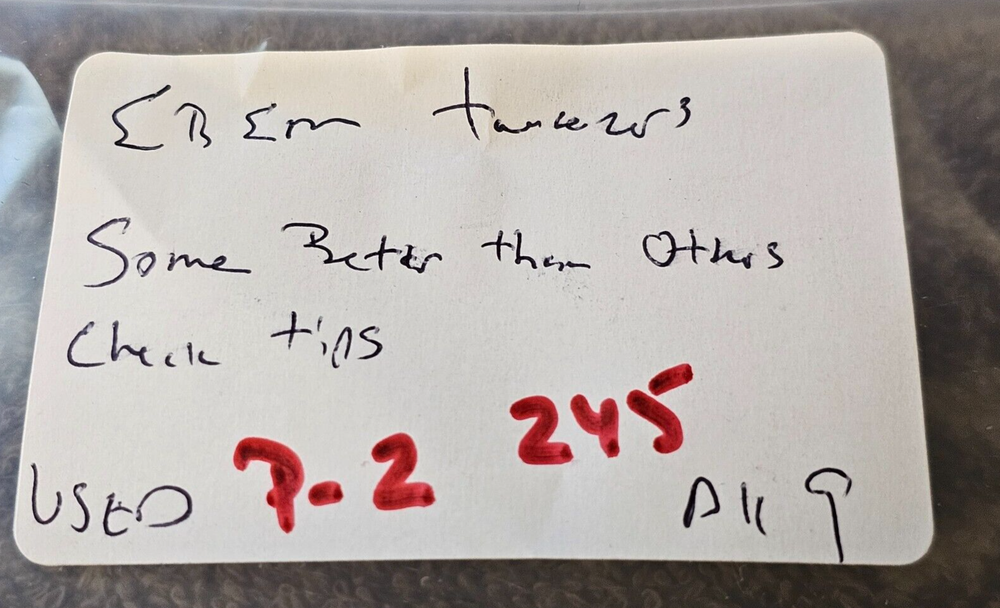 EREM twuezers
Some Better than Others
Check tips
245
USED 7-2 All 9